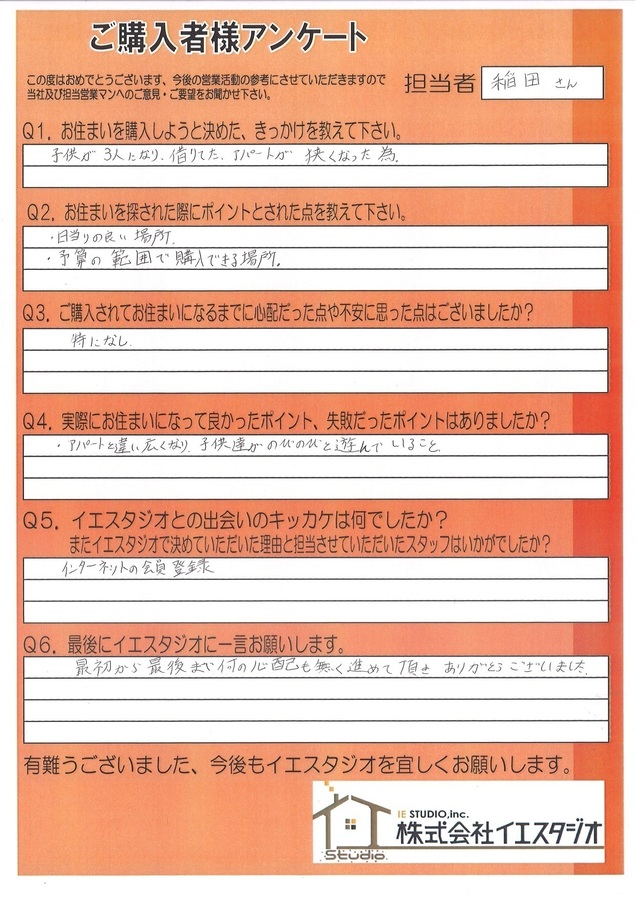 ご購入者様アンケート
この度はおめでとうございます、今後の営業活動の参考にさせていただきますので
当社及び担当営業マンへのご意見・ご要望をお聞かせ下さい。
担当者 稲田 さん
Q1. お住まいを購入しようと決めた、きっかけを教えて下さい。
子供が3人になり、借りてた、アパートが 狭くなった為。
Q2. お住まいを探された際にポイントとされた点を教えて下さい。
・日当りの良い場所。
・予算の範囲で購入できる場所。
Q3. ご購入されてお住まいになるまでに心配だった点や不安に思った点はございましたか?
特になし。
Q4. 実際にお住まいになって良かったポイント、失敗だったポイントはありましたか?
・アパートと違い広くなり、子供達がのびのびと遊んでいること。
Q5. イエスタジオとの出会いのキッカケは何でしたか?
またイエスタジオで決めていただいた理由と担当させていただいたスタッフはいかがでしたか?
インターネットの会員登録
Q6. 最後にイエスタジオに一言お願いします。
最初から最後まで何の心配も無く進めて頂き ありがとうございました。
有難うございました、今後もイエスタジオを宜しくお願いします。
IE STUDIO,inc.
株式会社イエスタジオ
Studio